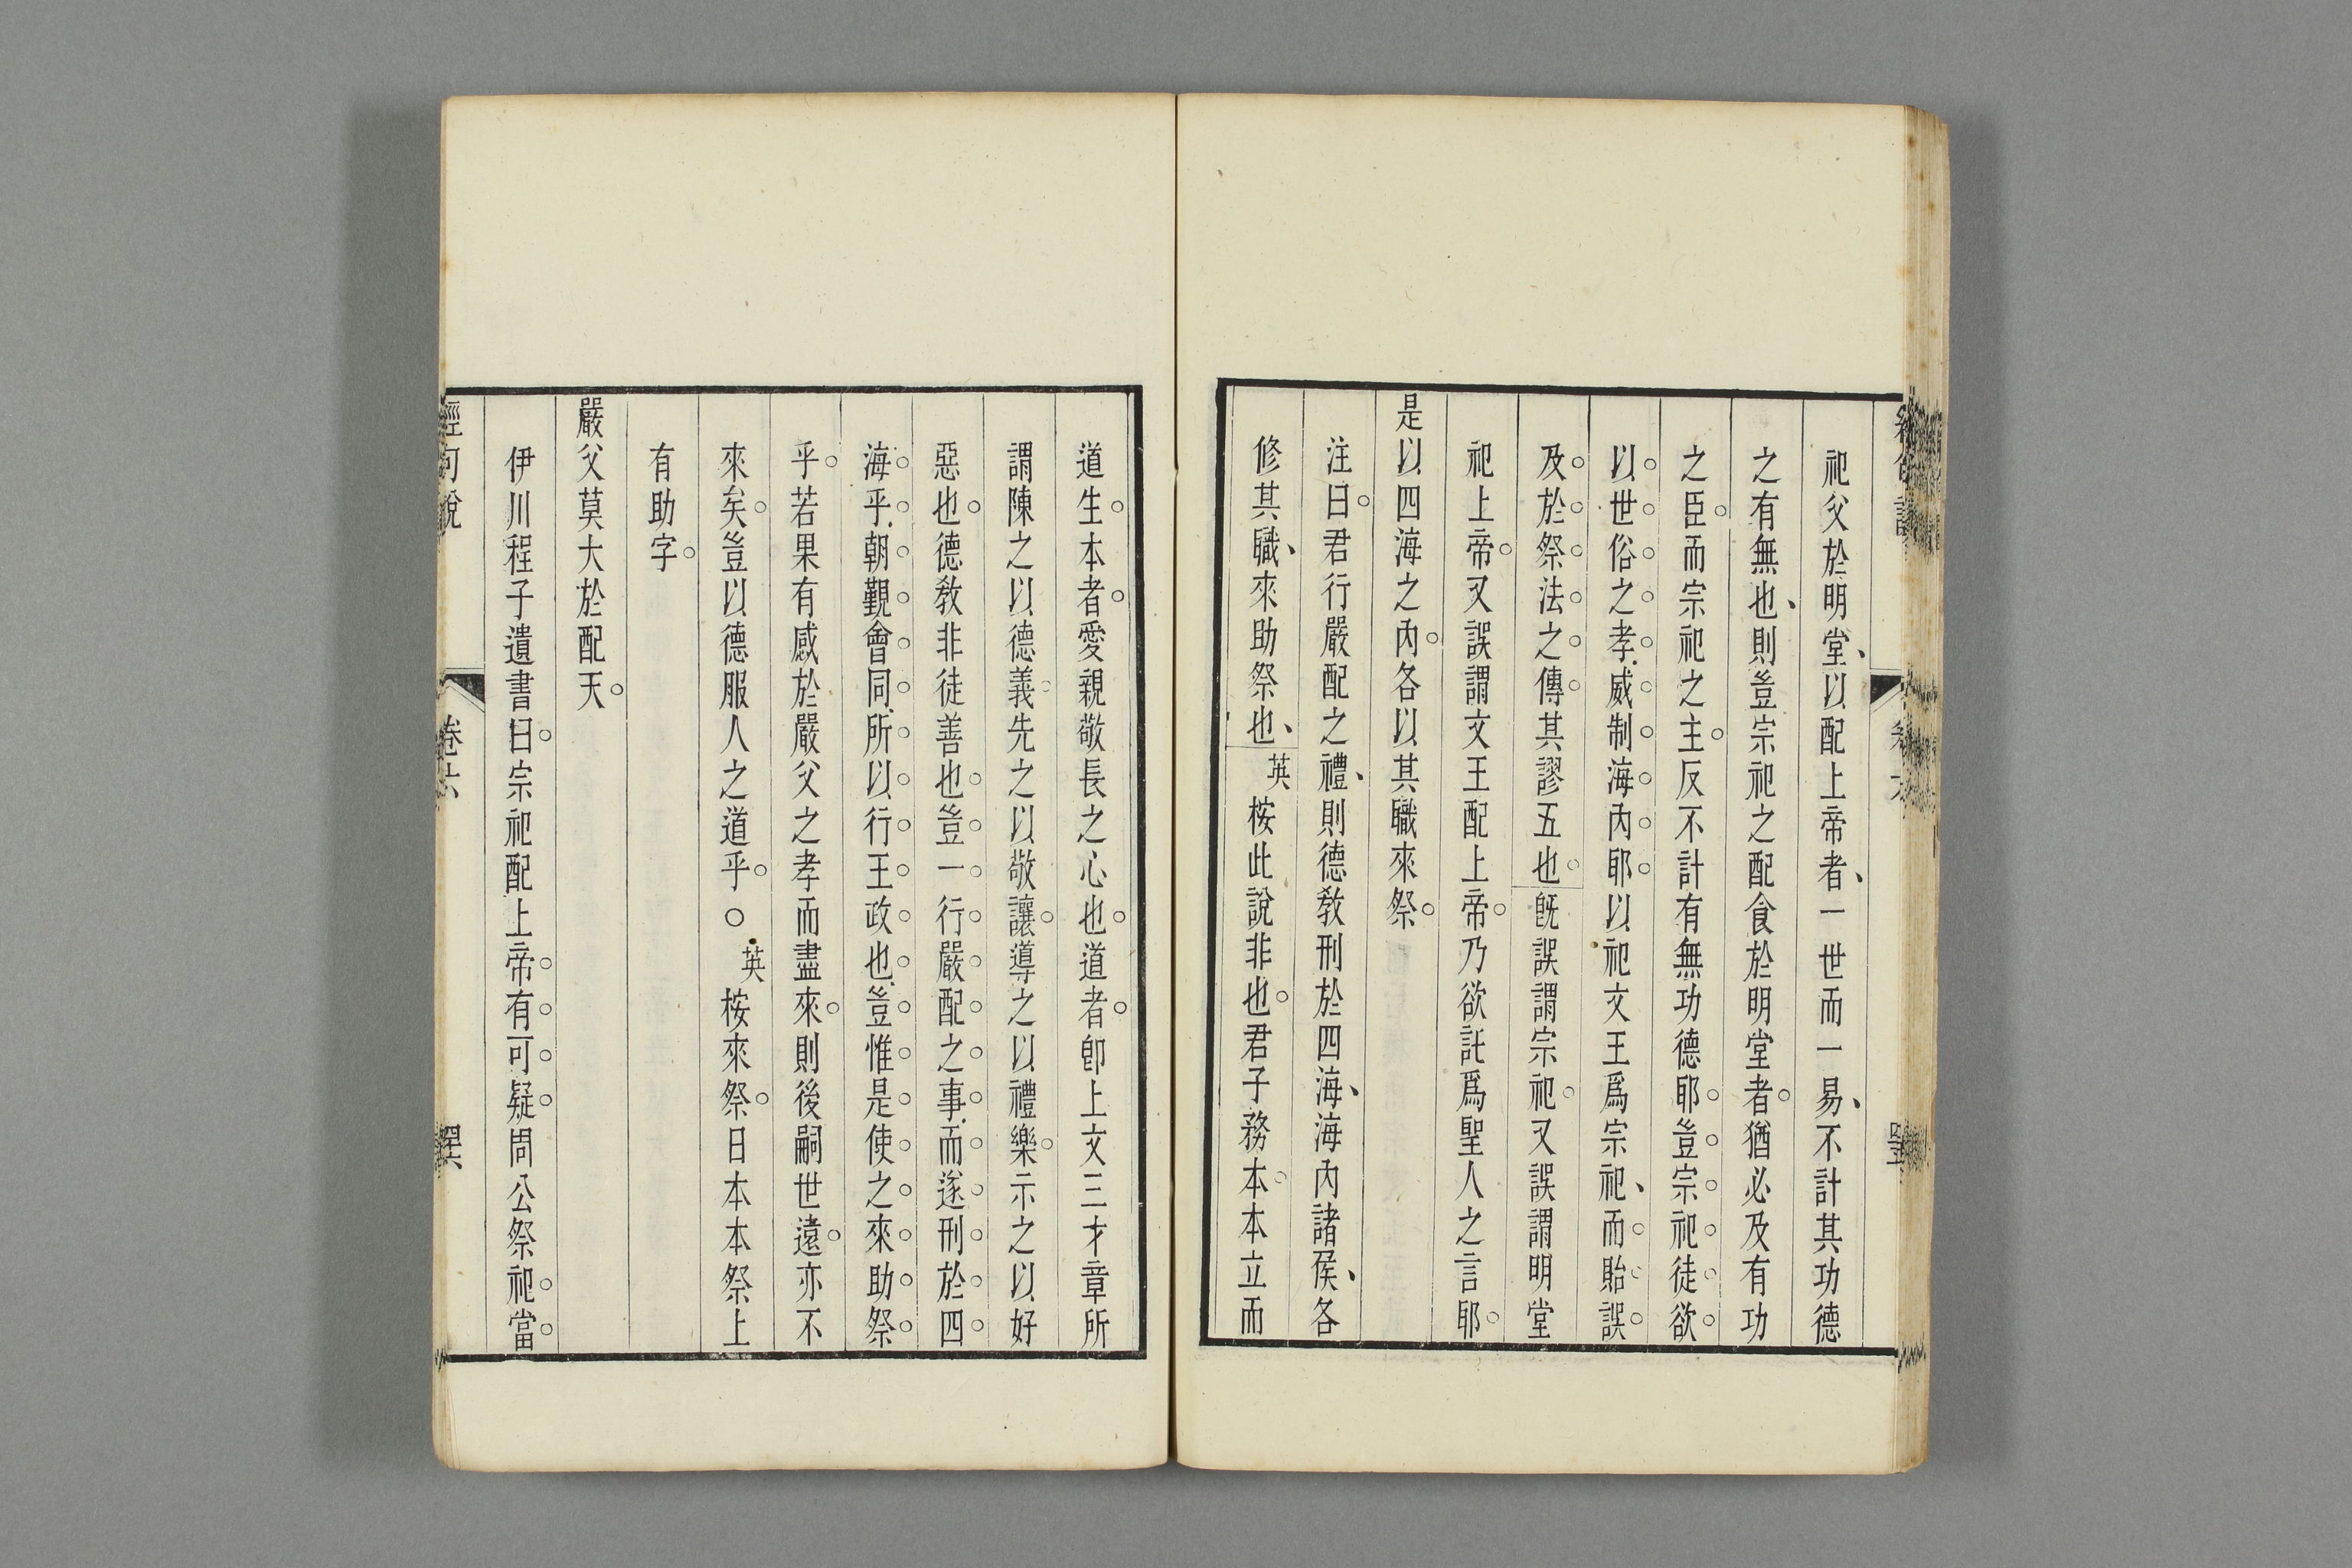 祀父於明堂、以配上帝者、一世而一易、不計其功德
之有無也、則豈宗祀之配食於明堂者。猶必及有功
之臣。而宗祀之主。反不計有無功德耶。豈宗祀徒欲
以世俗之孝威制海內耶。以祀文王爲宗祀、而貽誤
及於祭法之傳。其謬五也。旣誤謂宗祀。又誤謂明堂
祀上帝。又誤謂文王配上帝。乃欲託爲聖人之言耶。
是以四海之內。各以其職來祭。
注曰。君行嚴配之禮、則德敎刑於四海、海內諸侯、各
修其職、來助祭也、英桉此說非也。君子務本。本立而
道生。本者。愛親敬長之心也。道者。卽上文三才章所
謂陳之以德義。先之以敬讓。導之以禮樂。示之以好
惡也。德敎非徒善也。豈一行嚴配之事。而遂刑於四
海乎。朝覲會同。所以行王政也。豈惟是使之來助祭
乎。若果有感於嚴父之孝而盡來。則後嗣世遠。亦不
來矣。豈以德服人之道乎。○英桉來祭。日本本祭上
有助字。
嚴父莫大於配天。
伊川程子遺書曰。宗祀配上帝。有可疑。周公祭祀。當
經句說
卷六